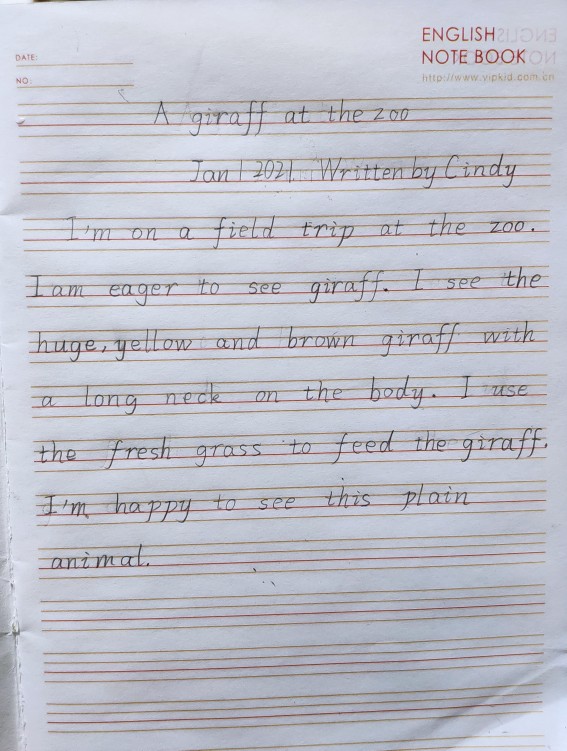 ENGLISH
NOTE BOOK
DATE:
NO:
http://www.vipkid.com.cn
A giraff at the zoo
Jan 1 2021 Written by Cindy
I'm on a field trip at the zoo.
I am eager to see giraff. I see the
huge, yellow and brown giraff with
a long neck on the body. I use
the fresh grass to feed the giraff.
I'm happy to see this plain
animal.